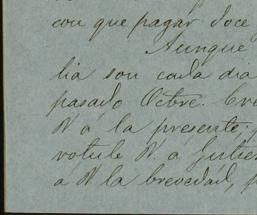 cou que pagar doce
Aunque
lia son cada dia
pasado Octbre. Cre
á la presente;
rotule á Gutier
á la brevedad, p